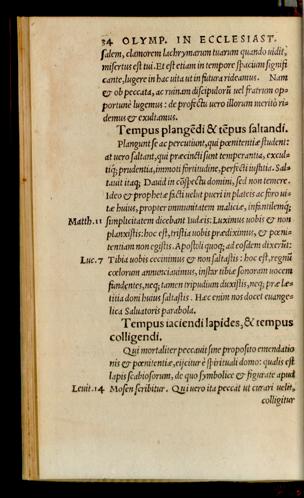 34 OLYMP. IN ECCLESIAST.
salem, clamorem lachrymarum tuarum quando uidit,
misertus est tui. Et est etiam in tempore spacium signifi
cante, lugere in hac uita ut in futura rideamus. Nam
& ob peccata, ac ruinam discipulorū uel fratrum op-
portunè lugemus: de profectu uero illorum meritò ri-
demus & exultamus.
Tempus plangēdi & tēpus saltandi.
Plangunt se ac percutiunt, qui pœnitentiæ student:
at uero saltant, qui præcincti sunt temperantia, excul-
tiq; prudentia, immoti fortitudine, perfecti iustitia. Sal-
tauit itaq; Dauid in cōspectu domini, sed non temere.
Ideo & prophetæ facti uelut pueri in plateis ac foro ui-
tæ huius, propter immunitatem malicie, infantilemq;
Matth. 11 simplicitatem dicebant Iudæis: Luximus uobis & non
planxistis: hoc est, tristia uobis prædiximus, & pœni-
tentiam non egistis. Apostoli quoq; ad eosdem dixerūt:
Luc. 7 Tibia uobis cecinimus & non saltastis: hoc est, regnū
cœlorum annunciauimus, instar tibiæ sonorum uocem
fundentes, neq; tamen tripudium duxistis, neq; præ læ-
titia doni huius saltastis. Hæc enim nos docet euange-
lica Saluatoris parabola.
Tempus iaciendi lapides, & tempus
colligendi.
Qui mortaliter peccauit sine proposito emendatio
nis & pœnitentiæ, eijcitur è spirituali domo: qualis est
lapis scabiosorum, de quo symbolice & figurate apud
Leuit. 14 Mosen scribitur. Qui uero ita peccat ut curari uelit,
colligitur